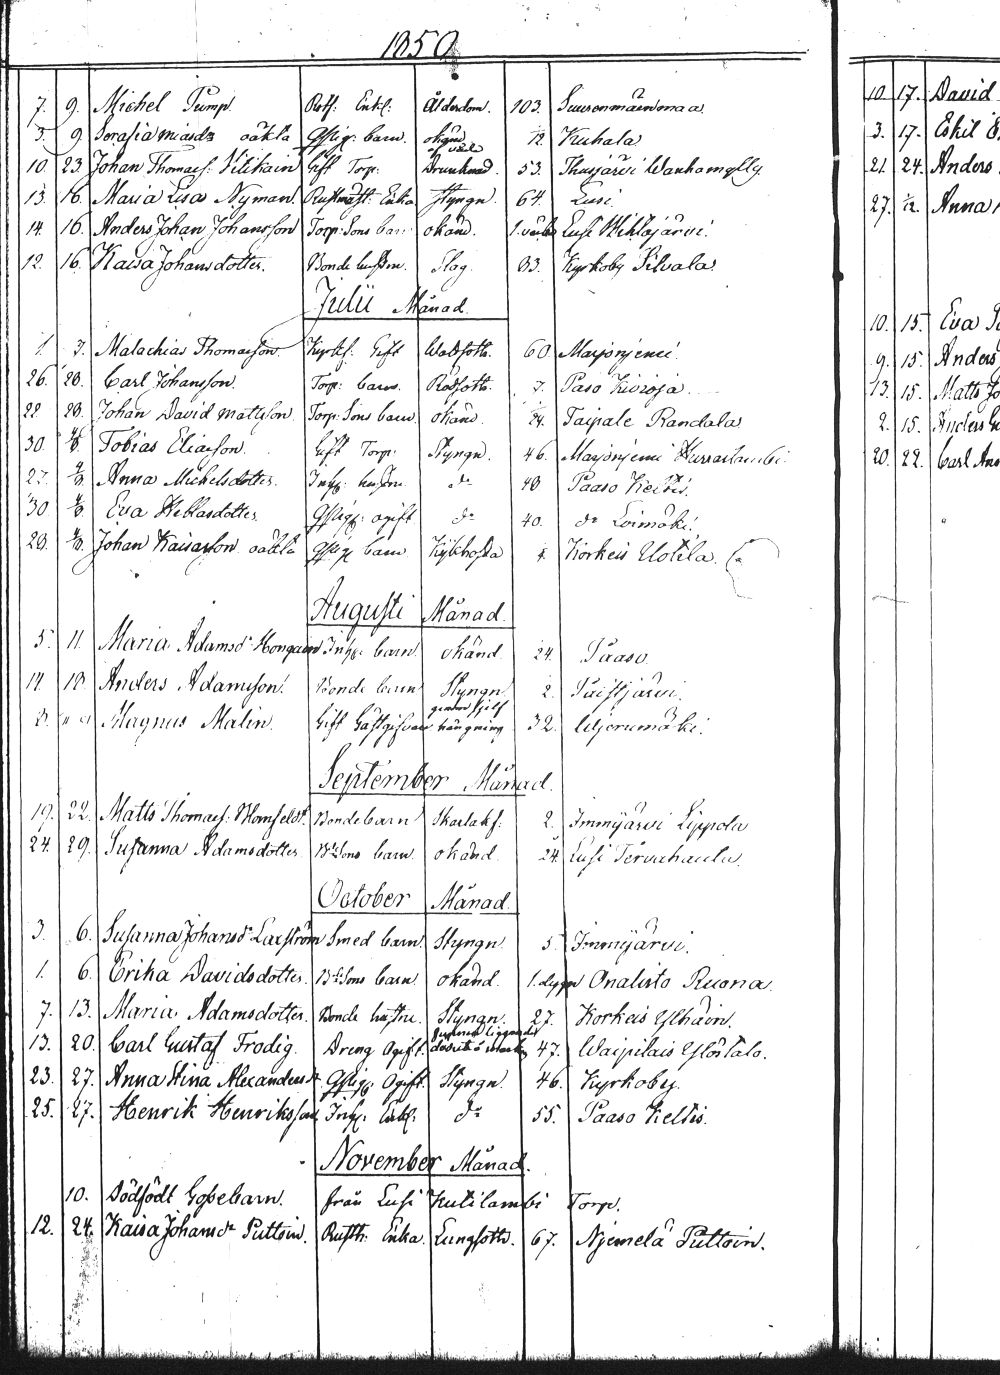 1850
7. 9. Michel Pümp. Rotf: Enkl: Ålderdom. 103. Suurenmäinmaa
3. 9 Serafia oäkta barn. okänd 12. Kuhala
10. 23. Johan Thomass: Vilikain Gift Torp: Drunknad. 53. Thusjärvi Wanhamylly.
13. 16. Maria Lisa Nyman. Enka Styngn. 64. Lusi.
14. 16. Anders Johan Johansson Torp: Sons barn okänd. Lusi
12. 16. Kaisa Johansdotter. Bonde hustru. Slag. 83. Kyrkoby Silvala.
Julii Månad.
1. 3. Malachias Thomasson. Gift 60. Marjoniemi.
26. 28. Carl Johansson. Torp: barn. Rödsoth. 7. Paso Kivioja
22 28. Johan David Mattsson Torp: Sons barn okänd 24. Taipale Randala
30. 4/8. Tobias Eliasson. Gift Torp: Styngn. 46. Marjoniemi
27. 4/8 Anna Michelsdotter. Inh: hustru. do 48 Paaso Keltis.
30 4/8 Eva ogift do 40. do Loimäki.
28. 4/8. Johan Kaisasson oäkta barn Kikhosta Korkeis Uotila.
Augusti Månad.
5. 11. Maria Adamsdr Hongain Inh: barn. okänd 24. Paaso
14. 18. Anders Adamsson. Bonde barn Styngn 2.
8. Magnus Malin. Gift Gästgifvare genom sjelf hängning 32. Uljerumäki.
September Månad.
19. 22. Matts Thomass: Bonde barn Skarlakf: 2. Immjärvi Lippola
24. 29. Susanna Adamsdotter Bdesons barn. okänd. 24. Lusi Tervahaula.
October Månad.
3. 6. Susanna Johansdr Laxström Smed barn. Styngn. 5. Immjärvi.
1. 6. Erika Davidsdotter. Bdesons barn. okänd. 1. dygn Onalisto Ruona.
7. 13. Maria Adamsdotter. Bonde hustru. Styngn. 27. Korkeis Ylhäin.
13. 20. Carl Gustaf Frodig. Dreng Ogift. 47. Waipilais Ylöstalo.
23. 27. Anna Stina Alexandersdr Ogift. Styngn. 46. Kyrkoby.
25. 27. Henrik Henriksson Inh: Enkl: do 55. Paaso Keltis.
November Månad.
10. Dödfödt Gossebarn. från Lusi Kutilambi Torp.
12. 24. Kaisa Johansdr Puttoin. Rusth: Enka. Lungsoth. 67. Njemelä Puttoin.
10. 17. David
3. 17. Eskil
21. 24. Anders
27. 1/12. Anna
10. 15. Eva
9. 15. Anders
13. 15. Matts Jo
2. 15. Anders
20. 22. Carl